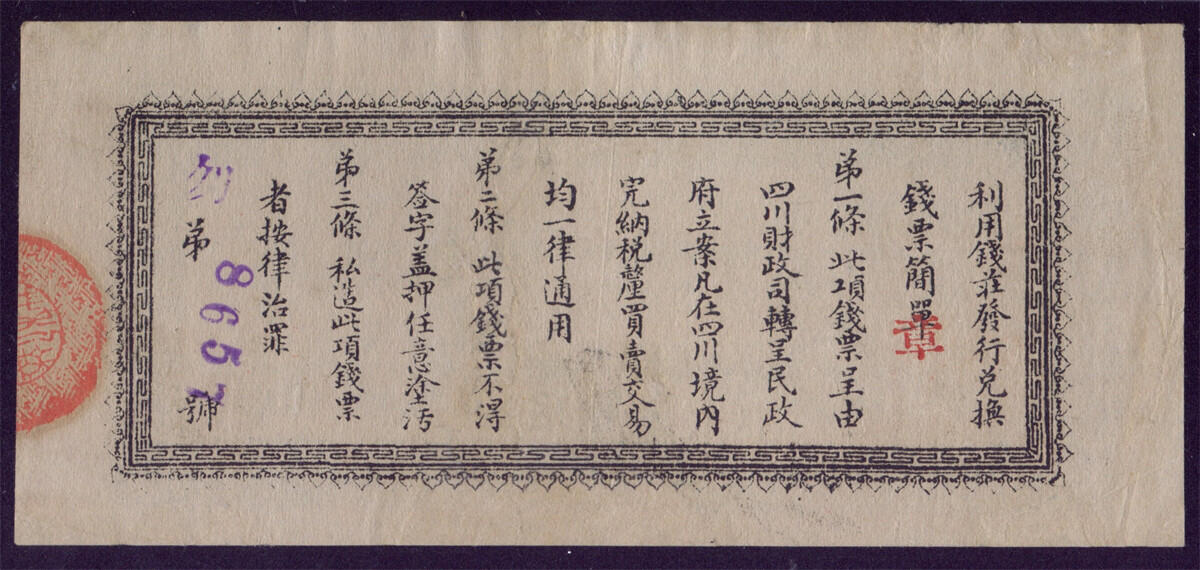 利用錢莊發行兌換
錢票簡單章
第一條 此項錢票呈由
四川財政司轉呈民政
府立案凡在四川境內
完納稅釐買賣交易
均一律通用
第二條 此項錢票不得
簽字蓋押任意塗污
第三條 私造此項錢票
者按律治罪
列 第 8657 號